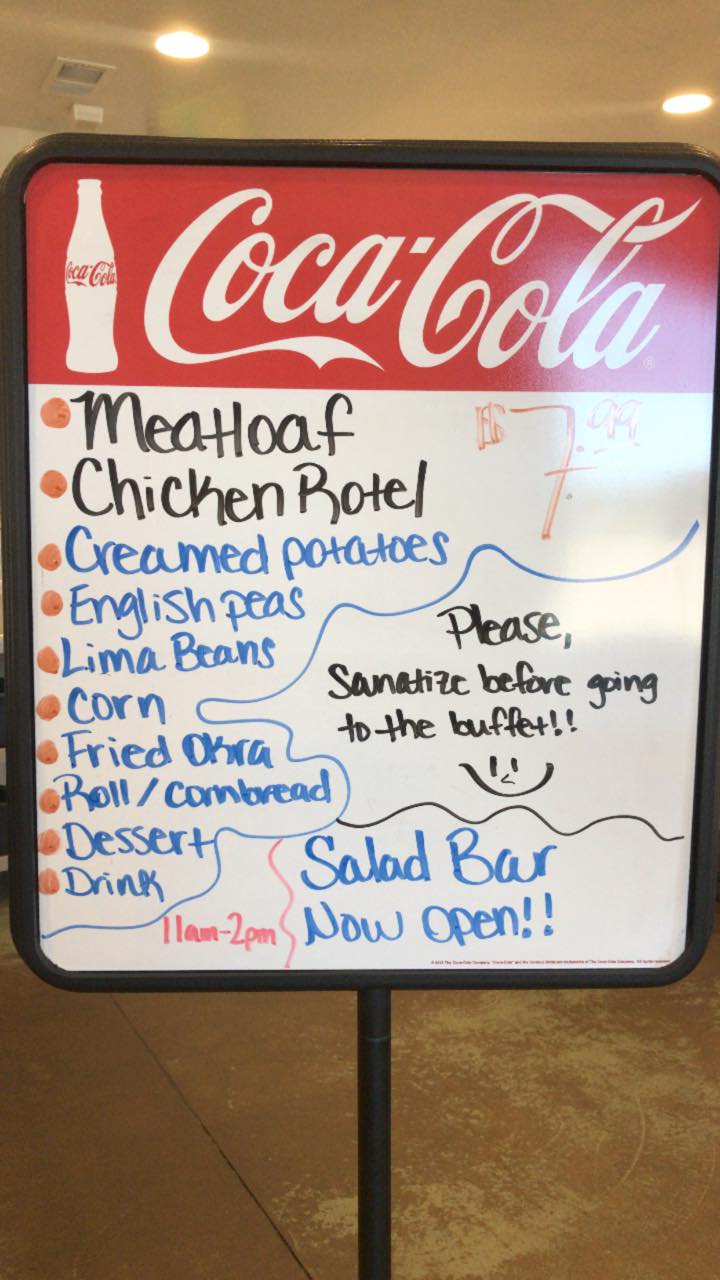 Coca-Cola
Coca-Cola
Meatloaf
$7.99
Chicken Rotel
Creamed potatoes
English peas
Lima Beans
Corn
Fried Okra
Roll / Cornbread
Dessert
Drink
11am-2pm
Please,
Sanatize before going
to the buffet!!
Salad Bar
Now Open!!